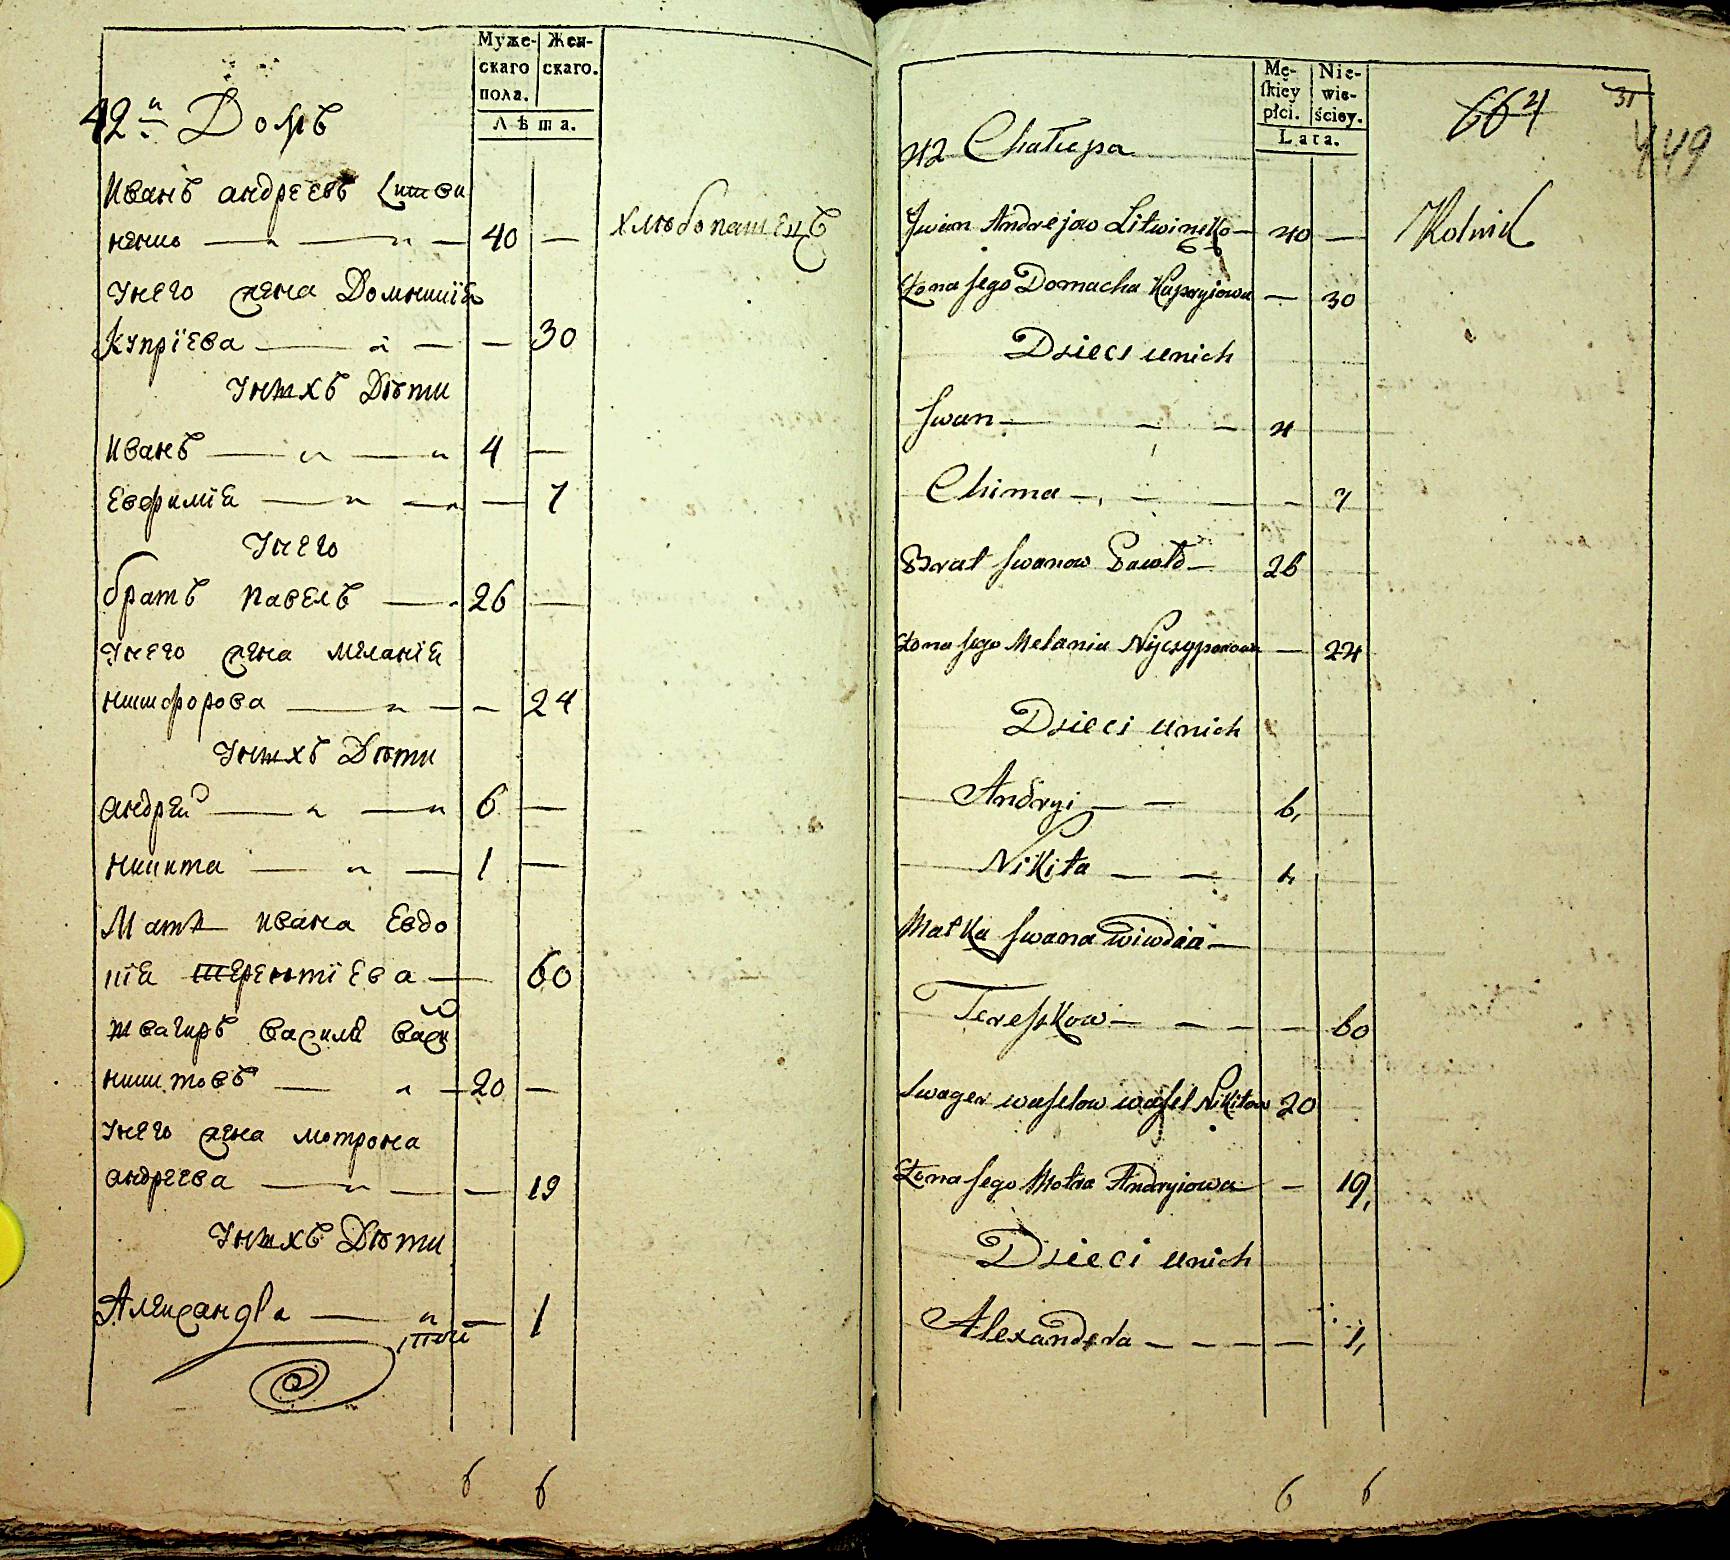 Муже-
скаго
пола.
Жен-
скаго.
Лѣта.
42й Домъ
Иванъ андреевъ Литви
ненко 40
хлѣбопашецъ
Унего жена Домникіѣ
Купріева 30
Унихъ Дѣти
Иванъ 4
Евфиміѣ 7
Унего
братъ павелъ 26
Унего жена меланіѣ
никифорова 24
Унихъ Дѣти
андрей 6
никита 1
Мать ивана Евдо
кіѣ терентіева 60
швагиръ василй
никитовъ 20
Унего жена мотрона
андреева 19
Унихъ Дѣти
Александра 1
6 6
Mę-
ſkiey
płci.
Nie-
wie-
ściey.
Lata.
664
31
449
42 Chałupa
Jwan Andrejow Litwinęko 40
Rolnik
Żona Jego Domacha Kupryiowa 30
Dzieci unich
Jwan 4
Chima 7
Brat Jwanow Pawło 26
Żona Jego Melania Nyczyporowa 24
Dzieci unich
Andryi 6
Nikita
Matka Jwana Wiwdia
Tereſzkowi 60
Swager waſelow waſel Nikitow 20
Żona Jego Motra Andryiowa 19
Dzieci unich
Alexandęra 1
6 6